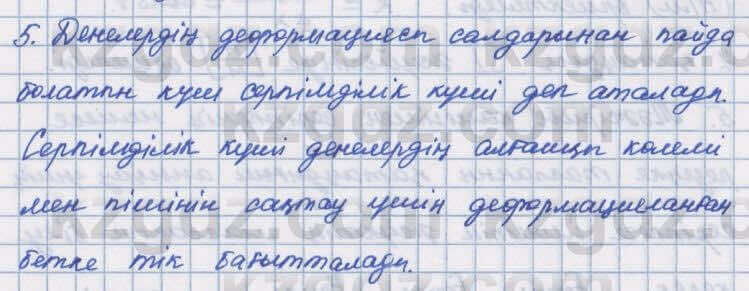 5. Денелердің деформациясы салдарынан пайда
болатын күш серпімділік күші деп аталады.
Серпімділік күші денелердің алғашқы көлемі
мен пішінін сақтау үшін деформацияланған
бетке тік бағытталады.